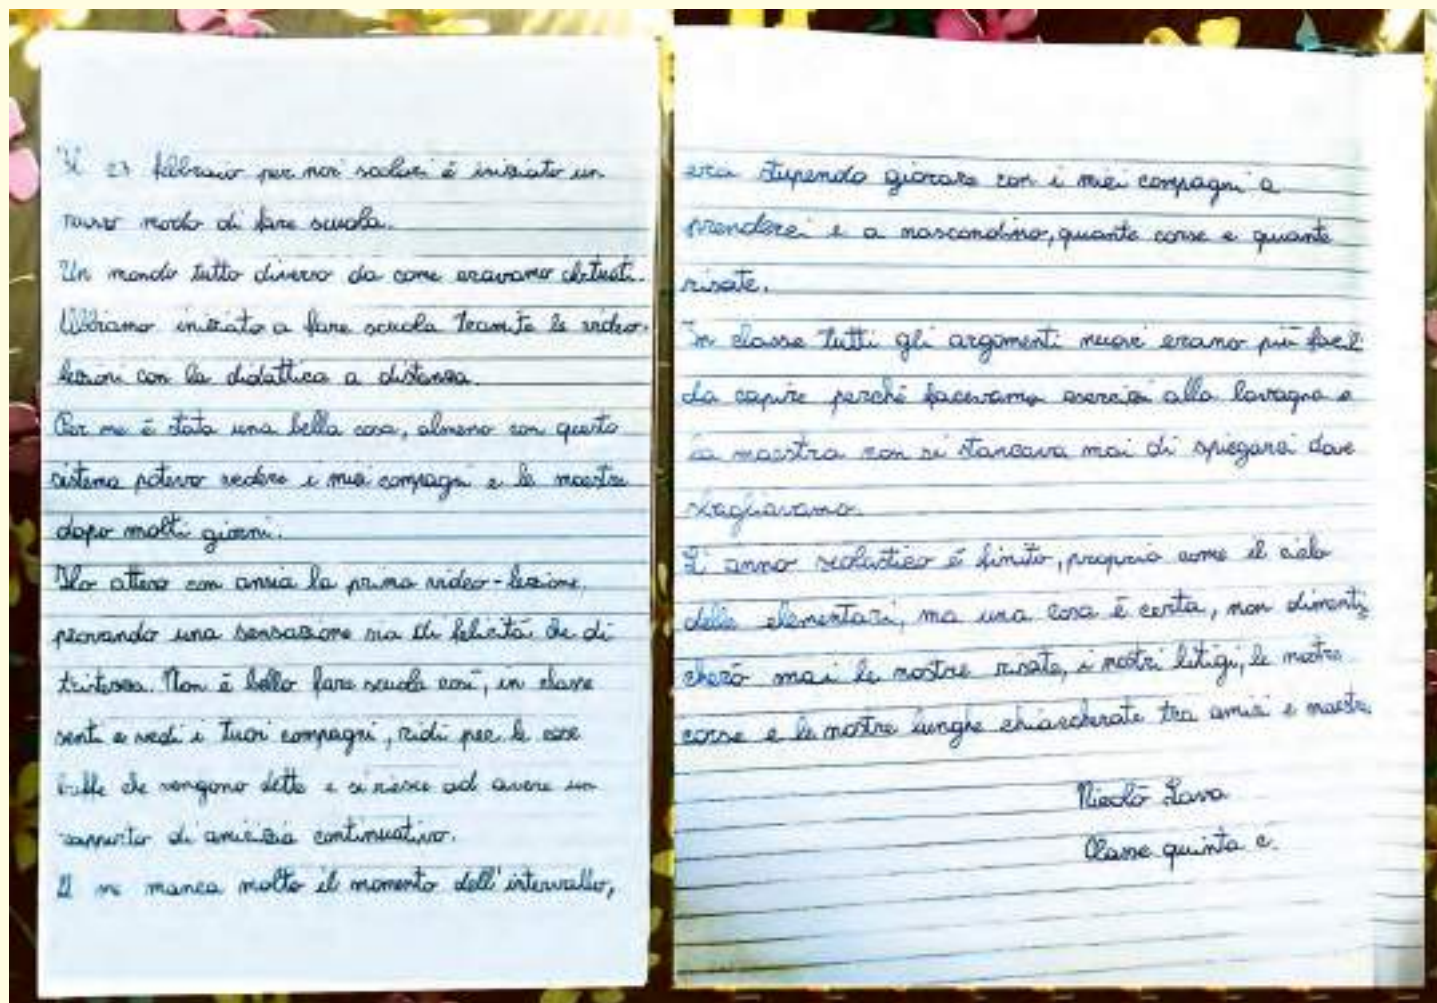 Il 23 febbraio per noi scolari è iniziato un
nuovo modo di fare scuola.
Un mondo tutto diverso da come eravamo abituati.
Abbiamo iniziato a fare scuola tramite le video-
lezioni con la didattica a distanza.
Per me è stata una bella cosa, almeno con questo
sistema potevo vedere i miei compagni e le maestre
dopo molti giorni.
Ho atteso con ansia la prima video-lezione,
provando una sensazione sia di felicità che di
tristezza. Non è bello fare scuola così, in classe
senti e vedi i tuoi compagni, ridi per le cose
buffe che vengono dette e si riesce ad avere un
rapporto di amicizia continuativo.
A me manca molto il momento dell'intervallo,
era stupendo giocare con i miei compagni a
prenderci e a nascondino, quante corse e quante
risate.
In classe tutti gli argomenti nuovi erano più facili
da capire perché facevamo esercizi alla lavagna e
la maestra non si stancava mai di spiegarci dove
sbagliavamo.
L'anno scolastico è finito, proprio come il ciclo
delle elementari, ma una cosa è certa, non dimenti
cherò mai le nostre risate, i nostri litigi, le nostre
corse e le nostre lunghe chiaccherate tra amici e maestre
Nicolò Lava
Classe quinta c.